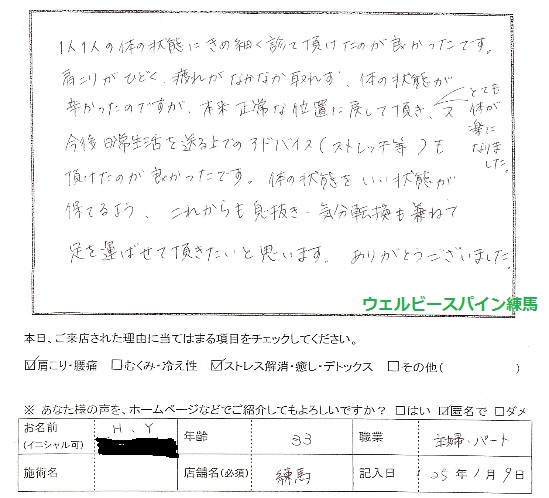 1人1人の体の状態にきめ細く診て頂けたのが良かったです。
肩こりがひどく、疲れがなかなか取れず、体の状態が
辛かったのですが、本来正常な位置に戻して頂き、
とても体が楽になりました。
今後日常生活を送る上でのアドバイス(ストレッチ等)も
頂けたのが良かったです。体の状態をいい状態が
保てるよう、これからも息抜き・気分転換も兼ねて
足を運ばせて頂きたいと思います。ありがとうございました。
ウェルビースパイン練馬
本日、ご来店された理由に当てはまる項目をチェックしてください。
☑肩こり・腰痛 □むくみ・冷え性 ☑ストレス解消・癒し・デトックス □その他( )
※ あなた様の声を、ホームページなどでご紹介してもよろしいですか? □はい ☑匿名で □ダメ
お名前 (イニシャル可) H、Y 年齢 33 職業 主婦・パート
施術名 店舗名(必須) 練馬 記入日 '05年1月9日